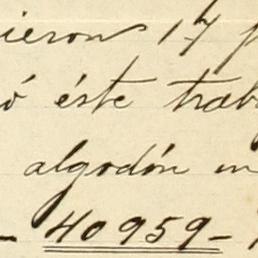 ieron 17 p
ó éste trab
algodón m
- 40959 -